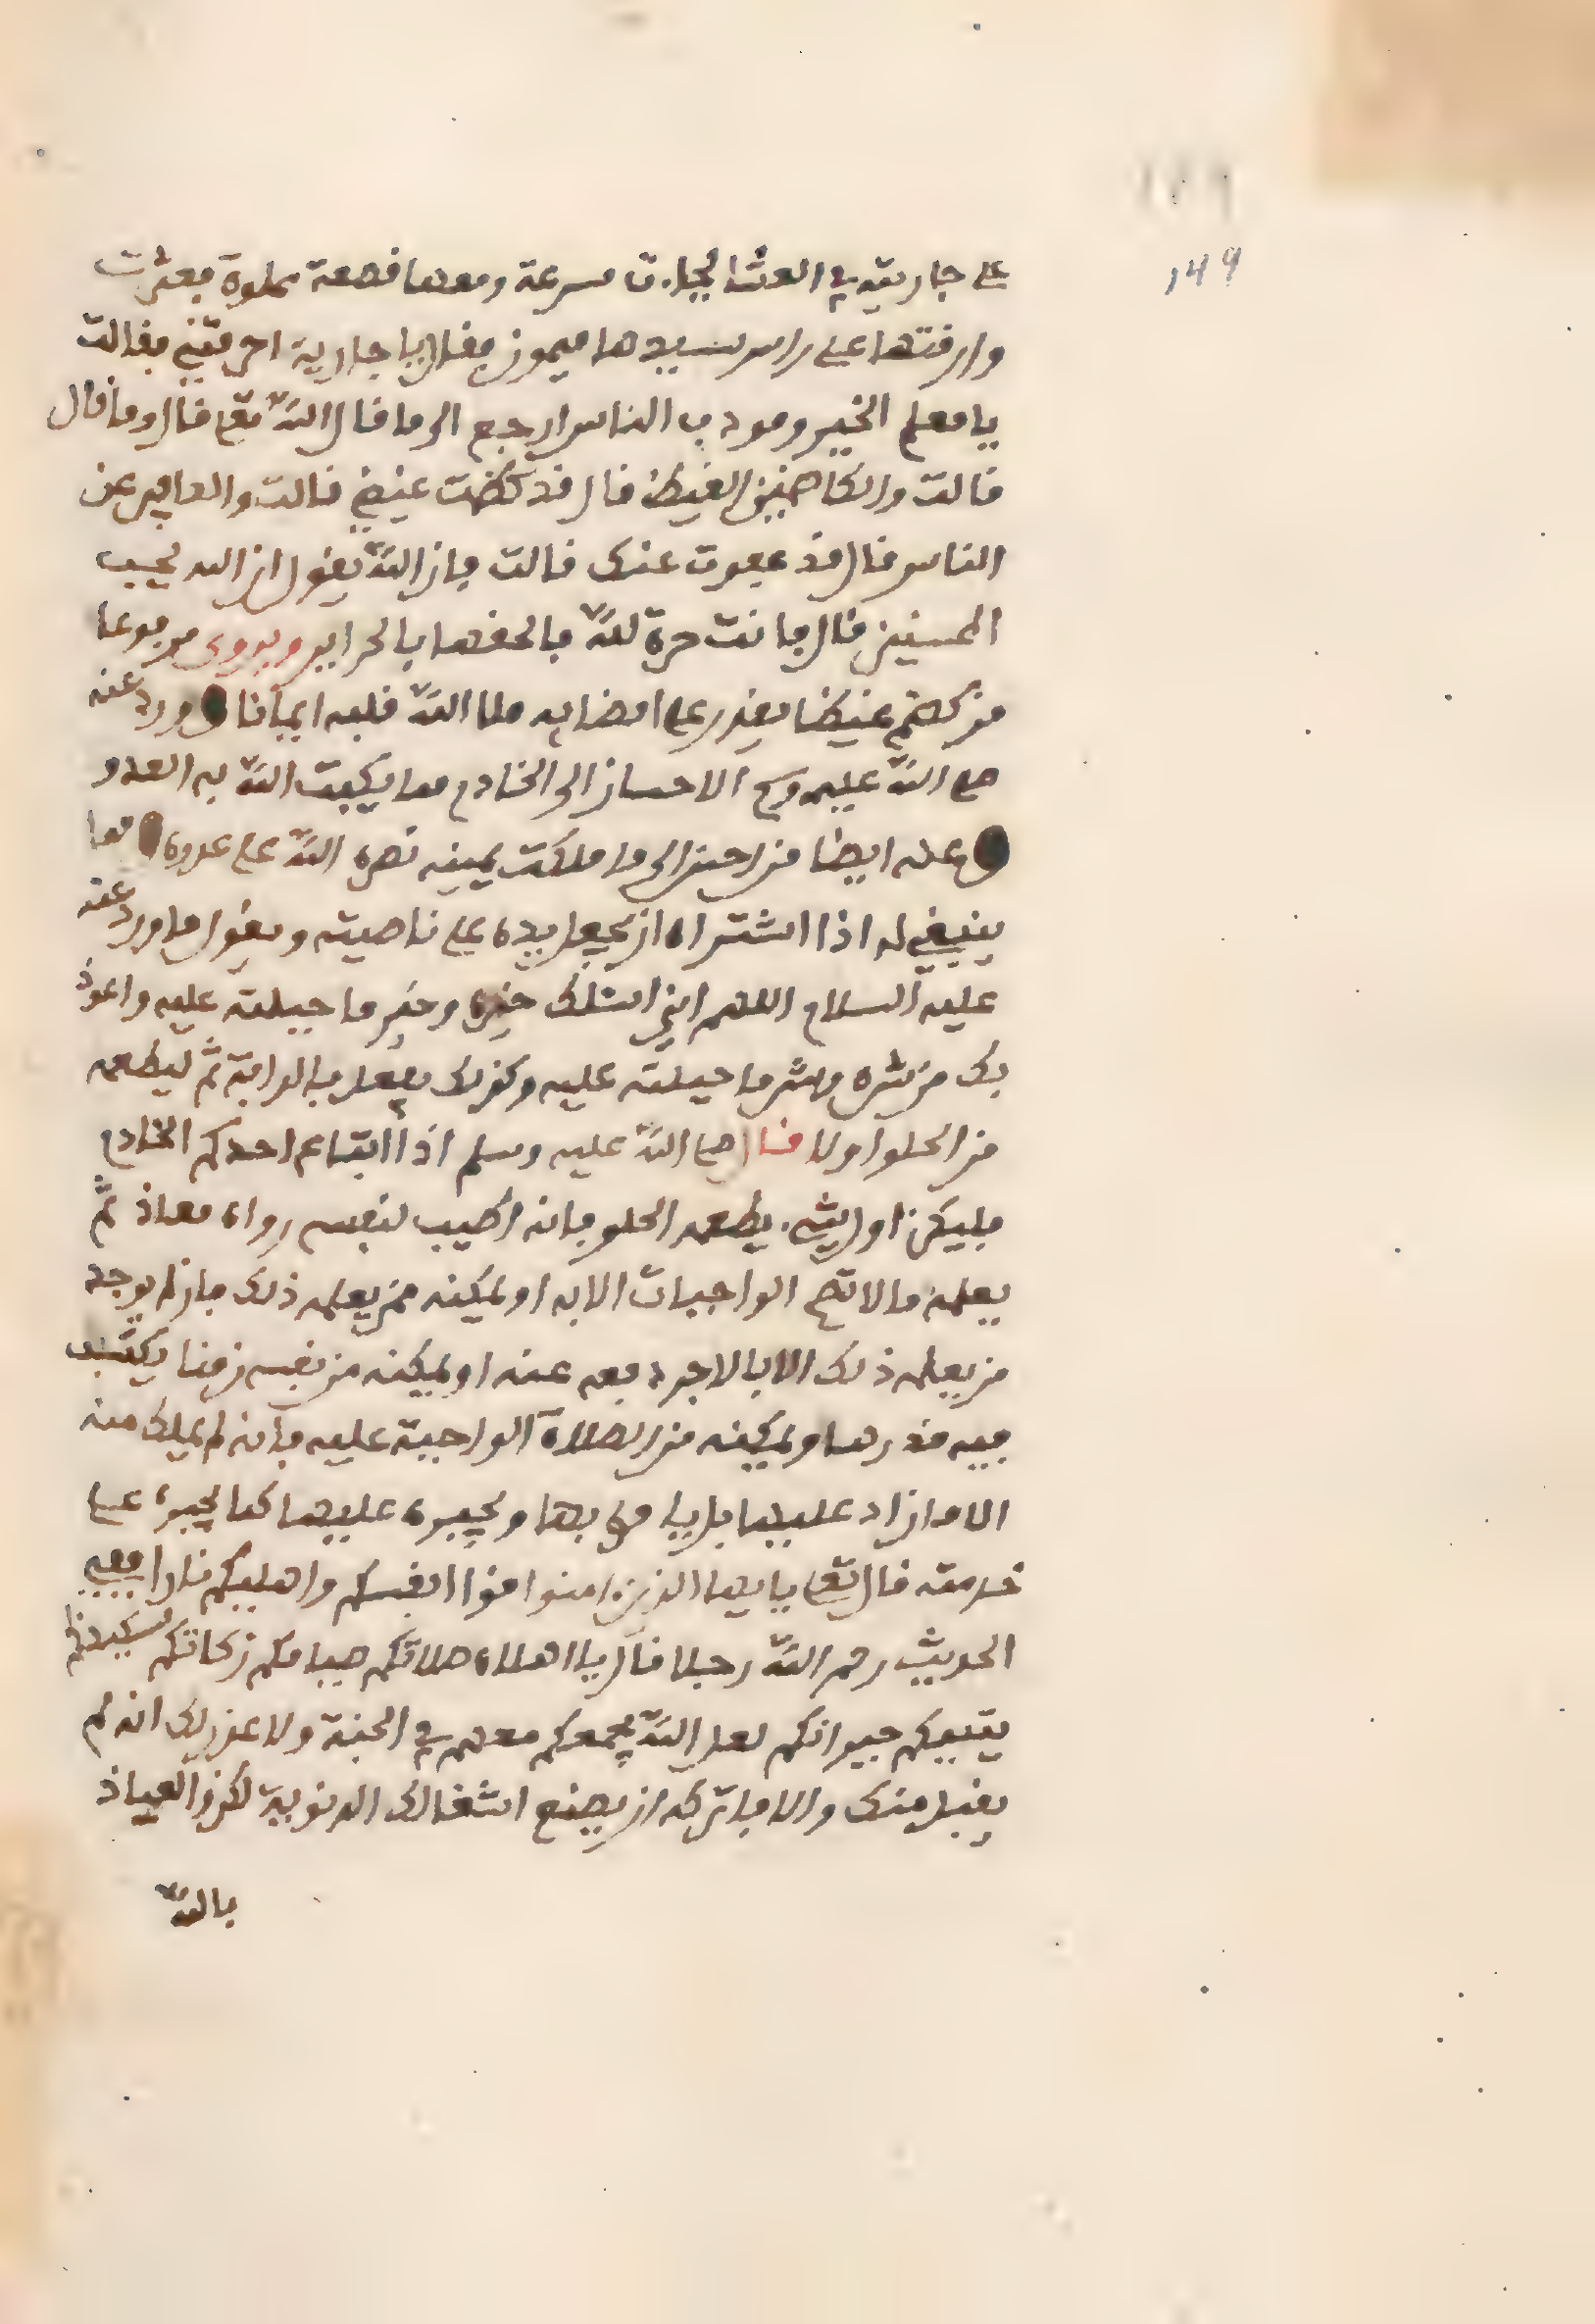 149
على جاريته في العشا فجاءت مسرعة ومعها قصعة مملوة فعثرت
وارقتها على راس سيدها ميمون فقال يا جارية احرقتني فقالت
يا معلم الخير ومودب الناس ارجع الى ما قال الله تعلى قال وما قال
قالت والكاظمين الغيظ قال قد كظمت غيظي قالت والعافين عن
الناس قال قد عفوت عنك قالت فان الله يقول ان الله يحب
المحسنين قال فانت حرة لله فالحقها بالحراير ويروى مرفوعا
من كظم غيظا يقدر على امضايه ملا الله قلبه ايمانا وورد عنه
صلى الله عليه وسلم الاحسان الى الخادم مما يكبت الله به العدو
وعنه ايضا من احسن الى ما ملكت يمينه نصره الله على عدوه مما
ينبغي له اذا اشتراه ان يجعل يده على ناصيته ويقول ما ورد عنه
عليه السلام اللهم اني اسئلك خيره وخير ما جبلته عليه واعوذ
بك من شره وشر ما جبلته عليه وكذلك يفعل بالدابة ثم ليطعمه
من الحلوا اولا قال صلى الله عليه وسلم اذا ابتاع احدكم الخادم
فليكن اول شيء يطعمه الحلو فانه اطيب لنفسه رواه معاذ ثم
يعلمه ما لا تصح الواجبات الا به او يمكنه ممن يعلمه ذلك فان لم يوجد
من يعلمه ذلك الا بالاجر دفعه عنه او يمكنه من نفسه زمنا يكتسب
فيه قدرها ويمكنه من الصلاة الواجبة عليه فانه لم يملك منه
الا ما زاد عليها بل يامره بها ويجبره عليها كما يجبره على
خدمته قال تعلى يايها الذين امنوا قوا انفسكم واهليكم نارا ففي
الحديث رحم الله رجلا قال يا اهلاه صلاتكم صيامكم زكاتكم مسكينكم
يتيمكم جيرانكم لعل الله يجمعكم معهم في الجنة ولا عذر لك انه لم
يقبل منك والا فاتركه ان يضيع اشغالك الدنوية لكن والعياذ
بالله